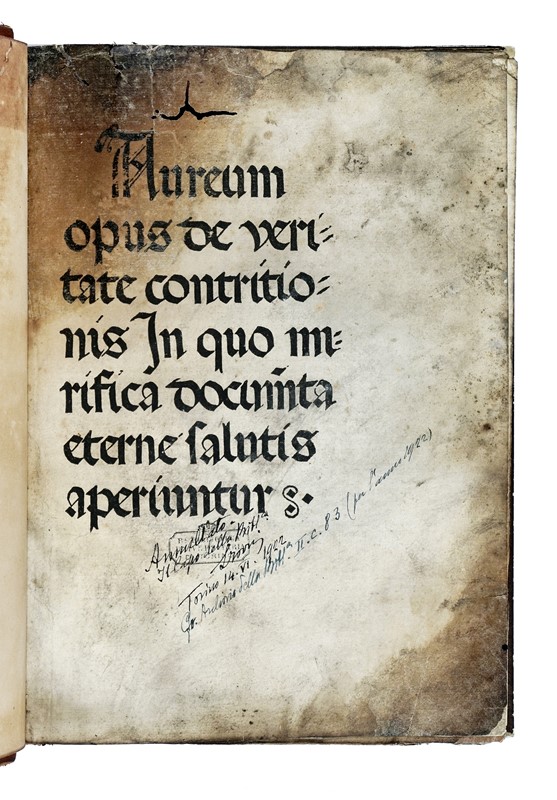 Aureum
opus de veri⸗
tate contritio⸗
nis In quo mi⸗
rifica docum̄ta
eterne ſalutis
aperiuntur
Annullato
Il Capo della Bibl.ª
Torino 14. VI. 1922
della Bibl.ª II. C. 83 (per l'anno 1922)